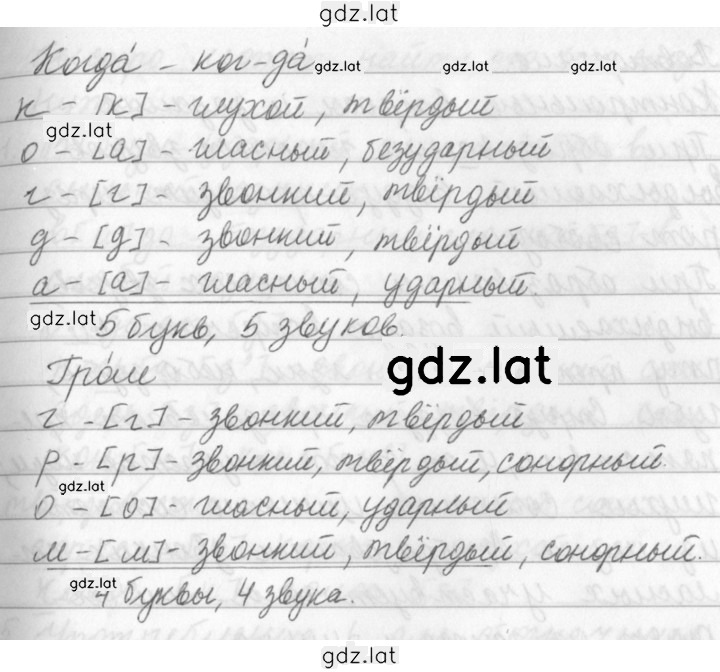 gdz.lat
Когда́ - ког-да́ gdz.lat gdz.lat gdz.lat
к - [к] - глухой, твёрдый
gdz.lat
о - [а] - гласный, безударный
г - [г] - звонкий, твёрдый
д - [д] - звонкий, твёрдый
а - [а] - гласный, ударный
gdz.lat
5 букв, 5 звуков.
gdz.lat
Гро́м
г - [г] - звонкий, твёрдый
р - [р] - звонкий, твёрдый, сонорный.
gdz.lat
о - [о] - гласный, ударный
м - [м] - звонкий, твёрдый, сонорный.
gdz.lat
4 буквы, 4 звука.
gdz.lat